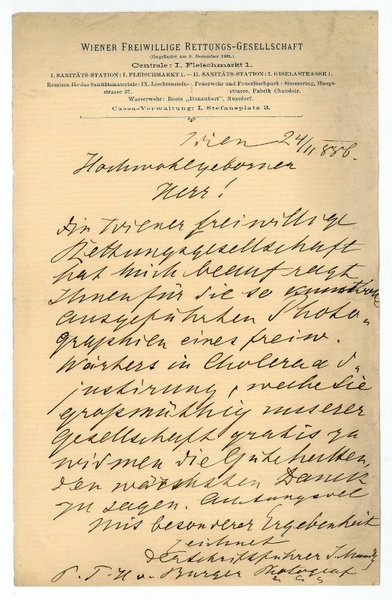 WIENER FREIWILLIGE RETTUNGS-GESELLSCHAFT
(Gegründet am 9. Dezember 1881.)
Centrale: I. Fleischmarkt 1.
I. SANITÄTS-STATION: I. FLEISCHMARKT 1. — II. SANITÄTS-STATION: I. GISELASTRASSE 1.
Remisen für das Sanitätsmateriale: IX. Liechtenstein-
strasse 37.
Feuerwehr und Feuerlöschpark: Simmering, Haupt-
strasse, Fabrik Chaudoir.
Wasserwehr: Boote „Donauhort“, Nussdorf.
Cassa-Verwaltung: I. Stefansplatz 3.
Wien 24/11 886.
Hochwohlgeborner
Herr!
Die Wiener freiwillige
Rettungsgesellschaft
hat mich beauftragt
Ihnen für die so
ausgeführten Photo-
graphien eines freiw.
Wärters in Cholera ad-
justirung, welche Sie
großmüthig unserer
Gesellschaft gratis zu
widmen die Güte hatten,
den wärmsten Danck
zu sagen. Achtungsvol
mit besonderer Ergebenheit
zeichnet
der Schriftführer
Burger Photograf